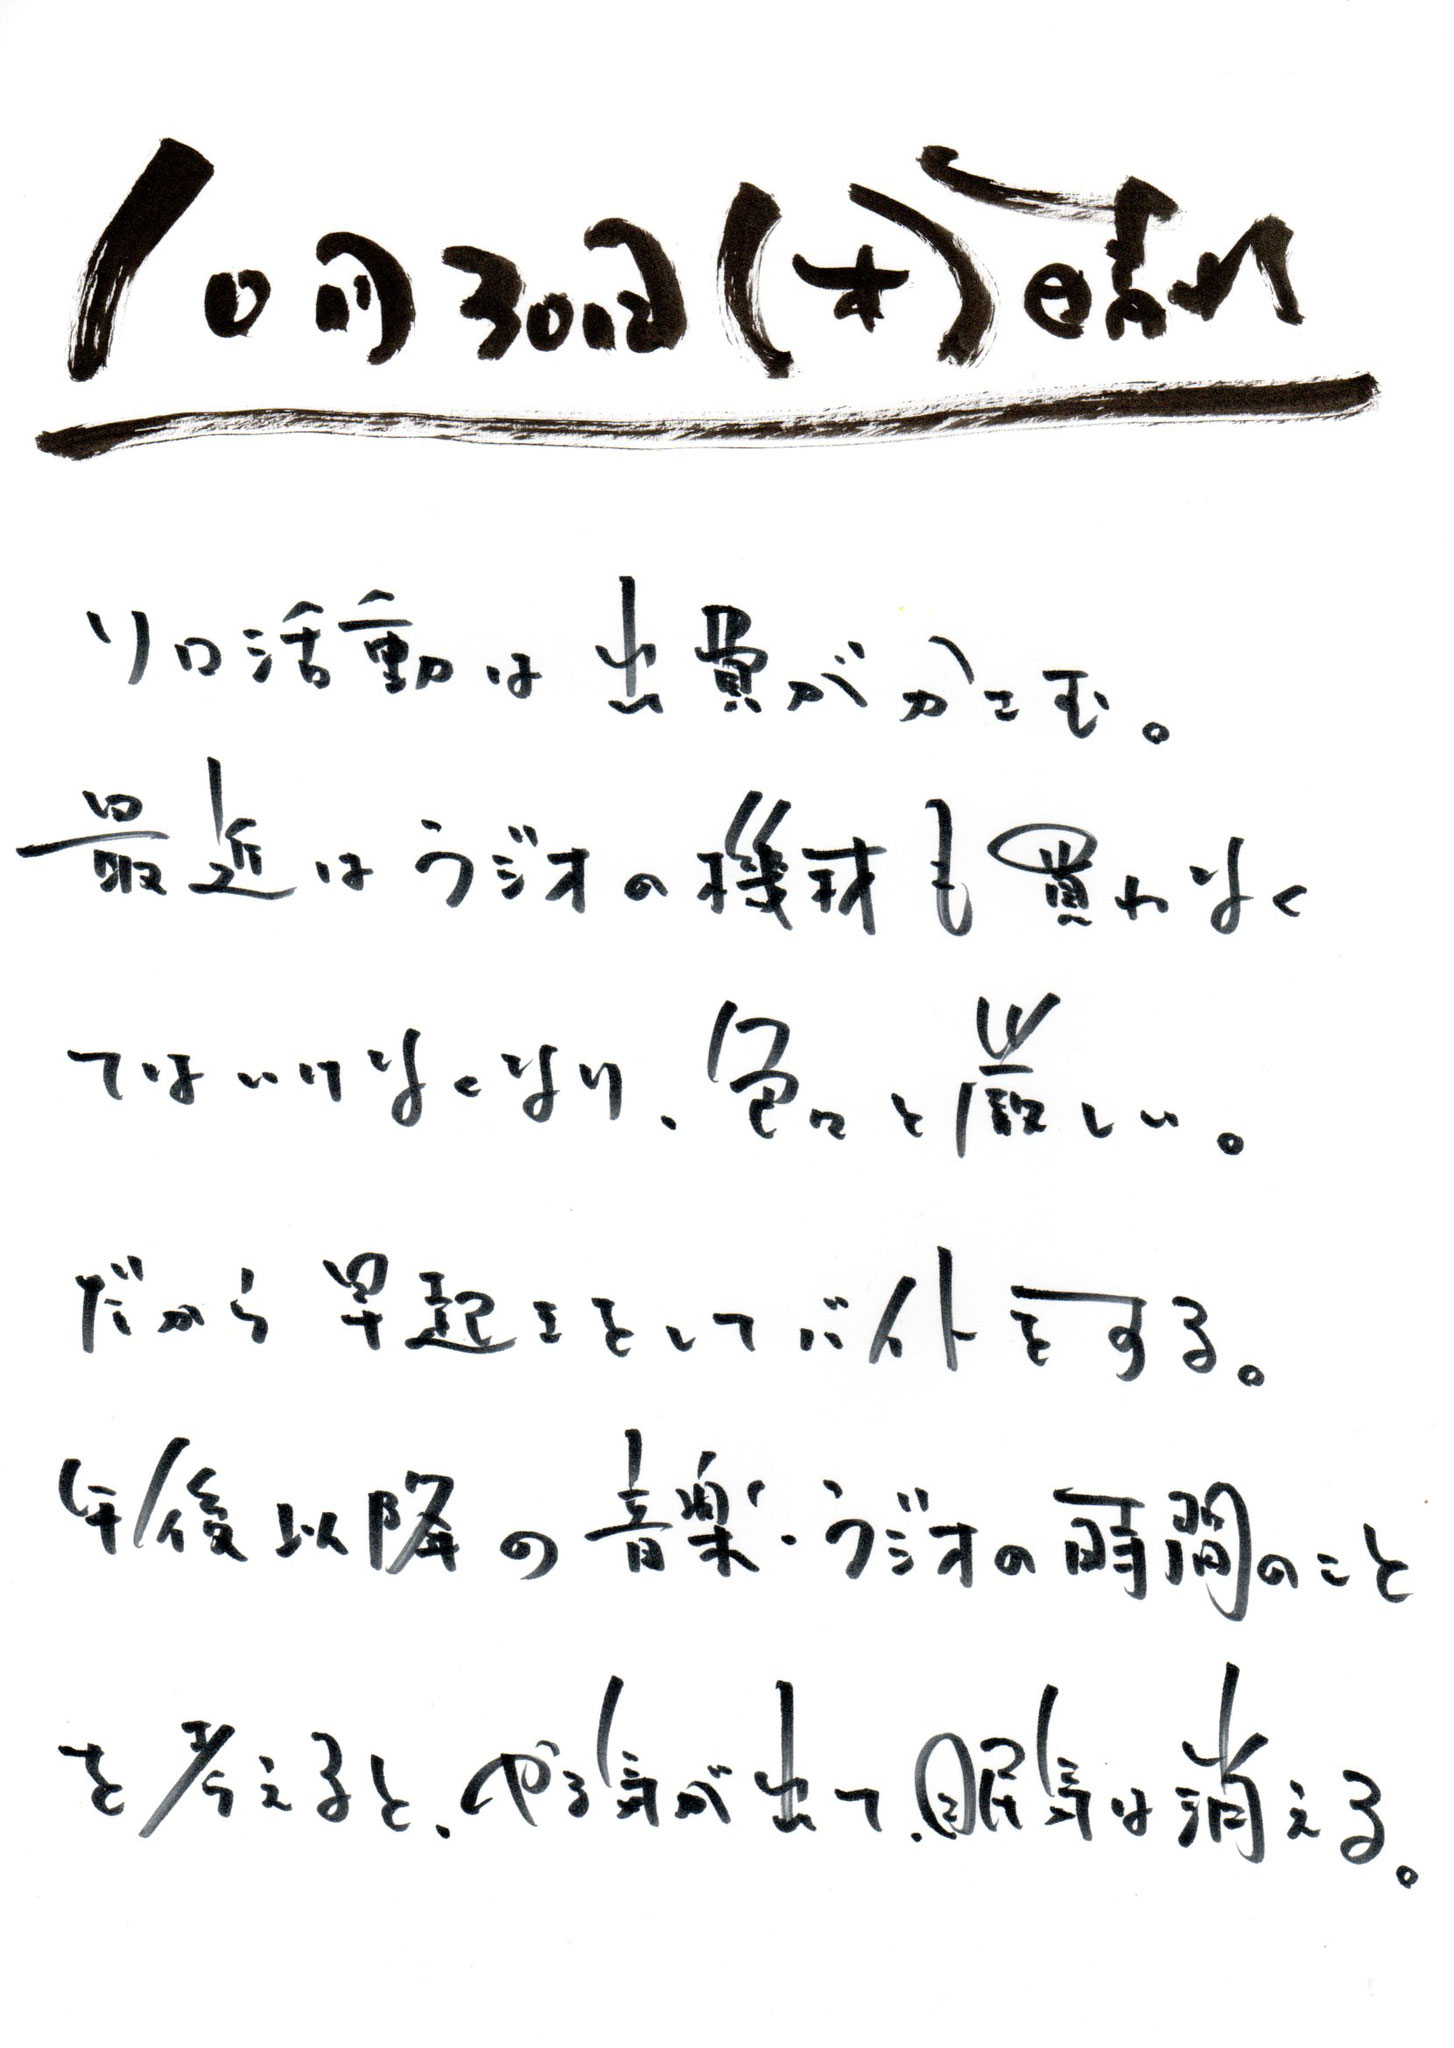 10月30日(木)晴れ
ソロ活動は出費がかさむ。
最近はラジオの機材も買わなく
てはいけなくなり、色々と厳しい。
だから早起きをしてバイトをする。
午後以降の音楽・ラジオの時間のこと
を考えると、やる気が出て、眠気は消える。